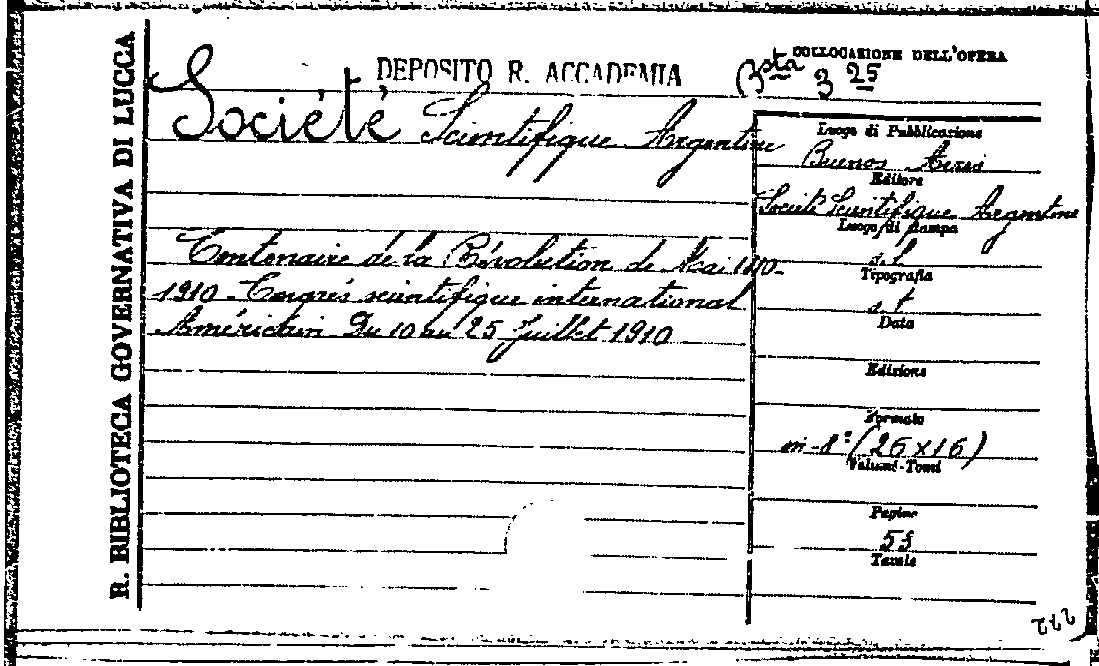 R. BIBLIOTECA GOVERNATIVA DI LUCCA
DEPOSITO R. ACCADEMIA
COLLOCAZIONE DELL'OPERA
Bsta 3 25
Société Scientifique Argentine
Centenaire de la Révolution de Mai 1810-
1910 - Congrés scientifique international
Américain Du 10 au 25 Juillet 1910
Luogo di Pubblicazione
Buenos Aires
Editore
Société Scientifique Argentine
Luogo di stampa
s. l
Tipografia
s. t
Data
Edizione
Formato
in-8° (26 x 16)
Volumi-Tomi
Pagine
55
Tavole